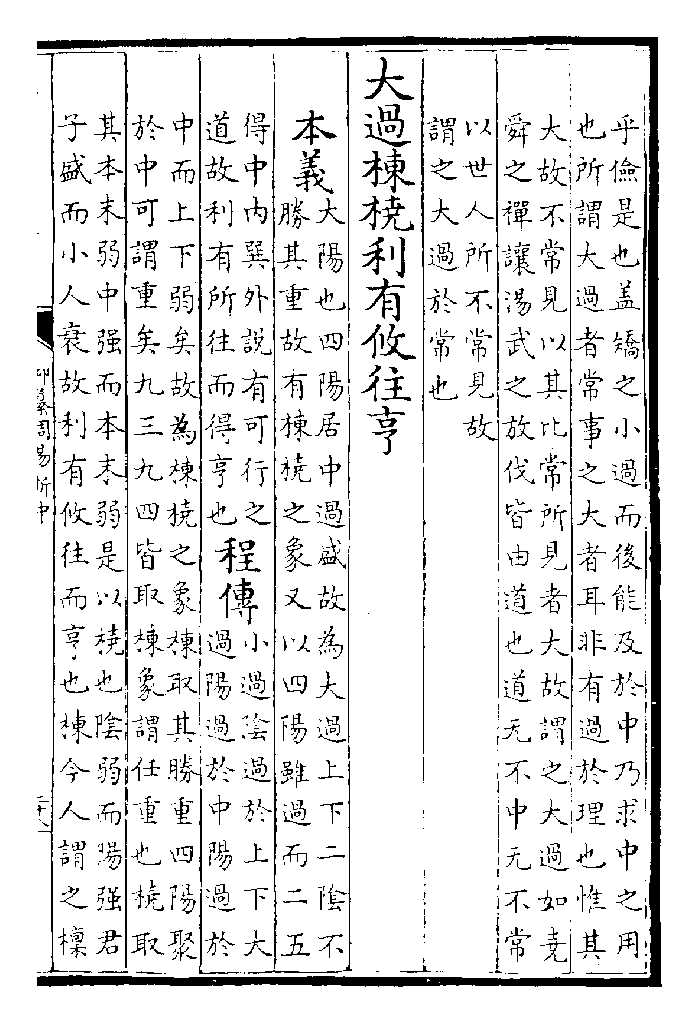 乎儉是也盖矯之小過而後能及於中乃求中之用
也所謂大過者常事之大者耳非有過於理也惟其
大故不常見以其比常所見者大故謂之大過如堯
舜之禪讓湯武之放伐皆由道也道无不中无不常
以世人所不常見故
謂之大過於常也
大過棟橈利有攸往亨
本義
大陽也四陽居中過盛故為大過上下二陰不
勝其重故有棟橈之象又以四陽雖過而二五
得中内巽外說有可行之
道故利有所往而得亨也
程傳
小過陰過於上下大
過陽過於中陽過於
中而上下弱矣故為棟橈之象棟取其勝重四陽聚
於中可謂重矣九三九四皆取棟象謂任重也橈取
其本末弱中强而本末弱是以橈也陰弱而陽强君
子盛而小人衰故利有攸往而亨也棟今人謂之檁
御纂周易折中